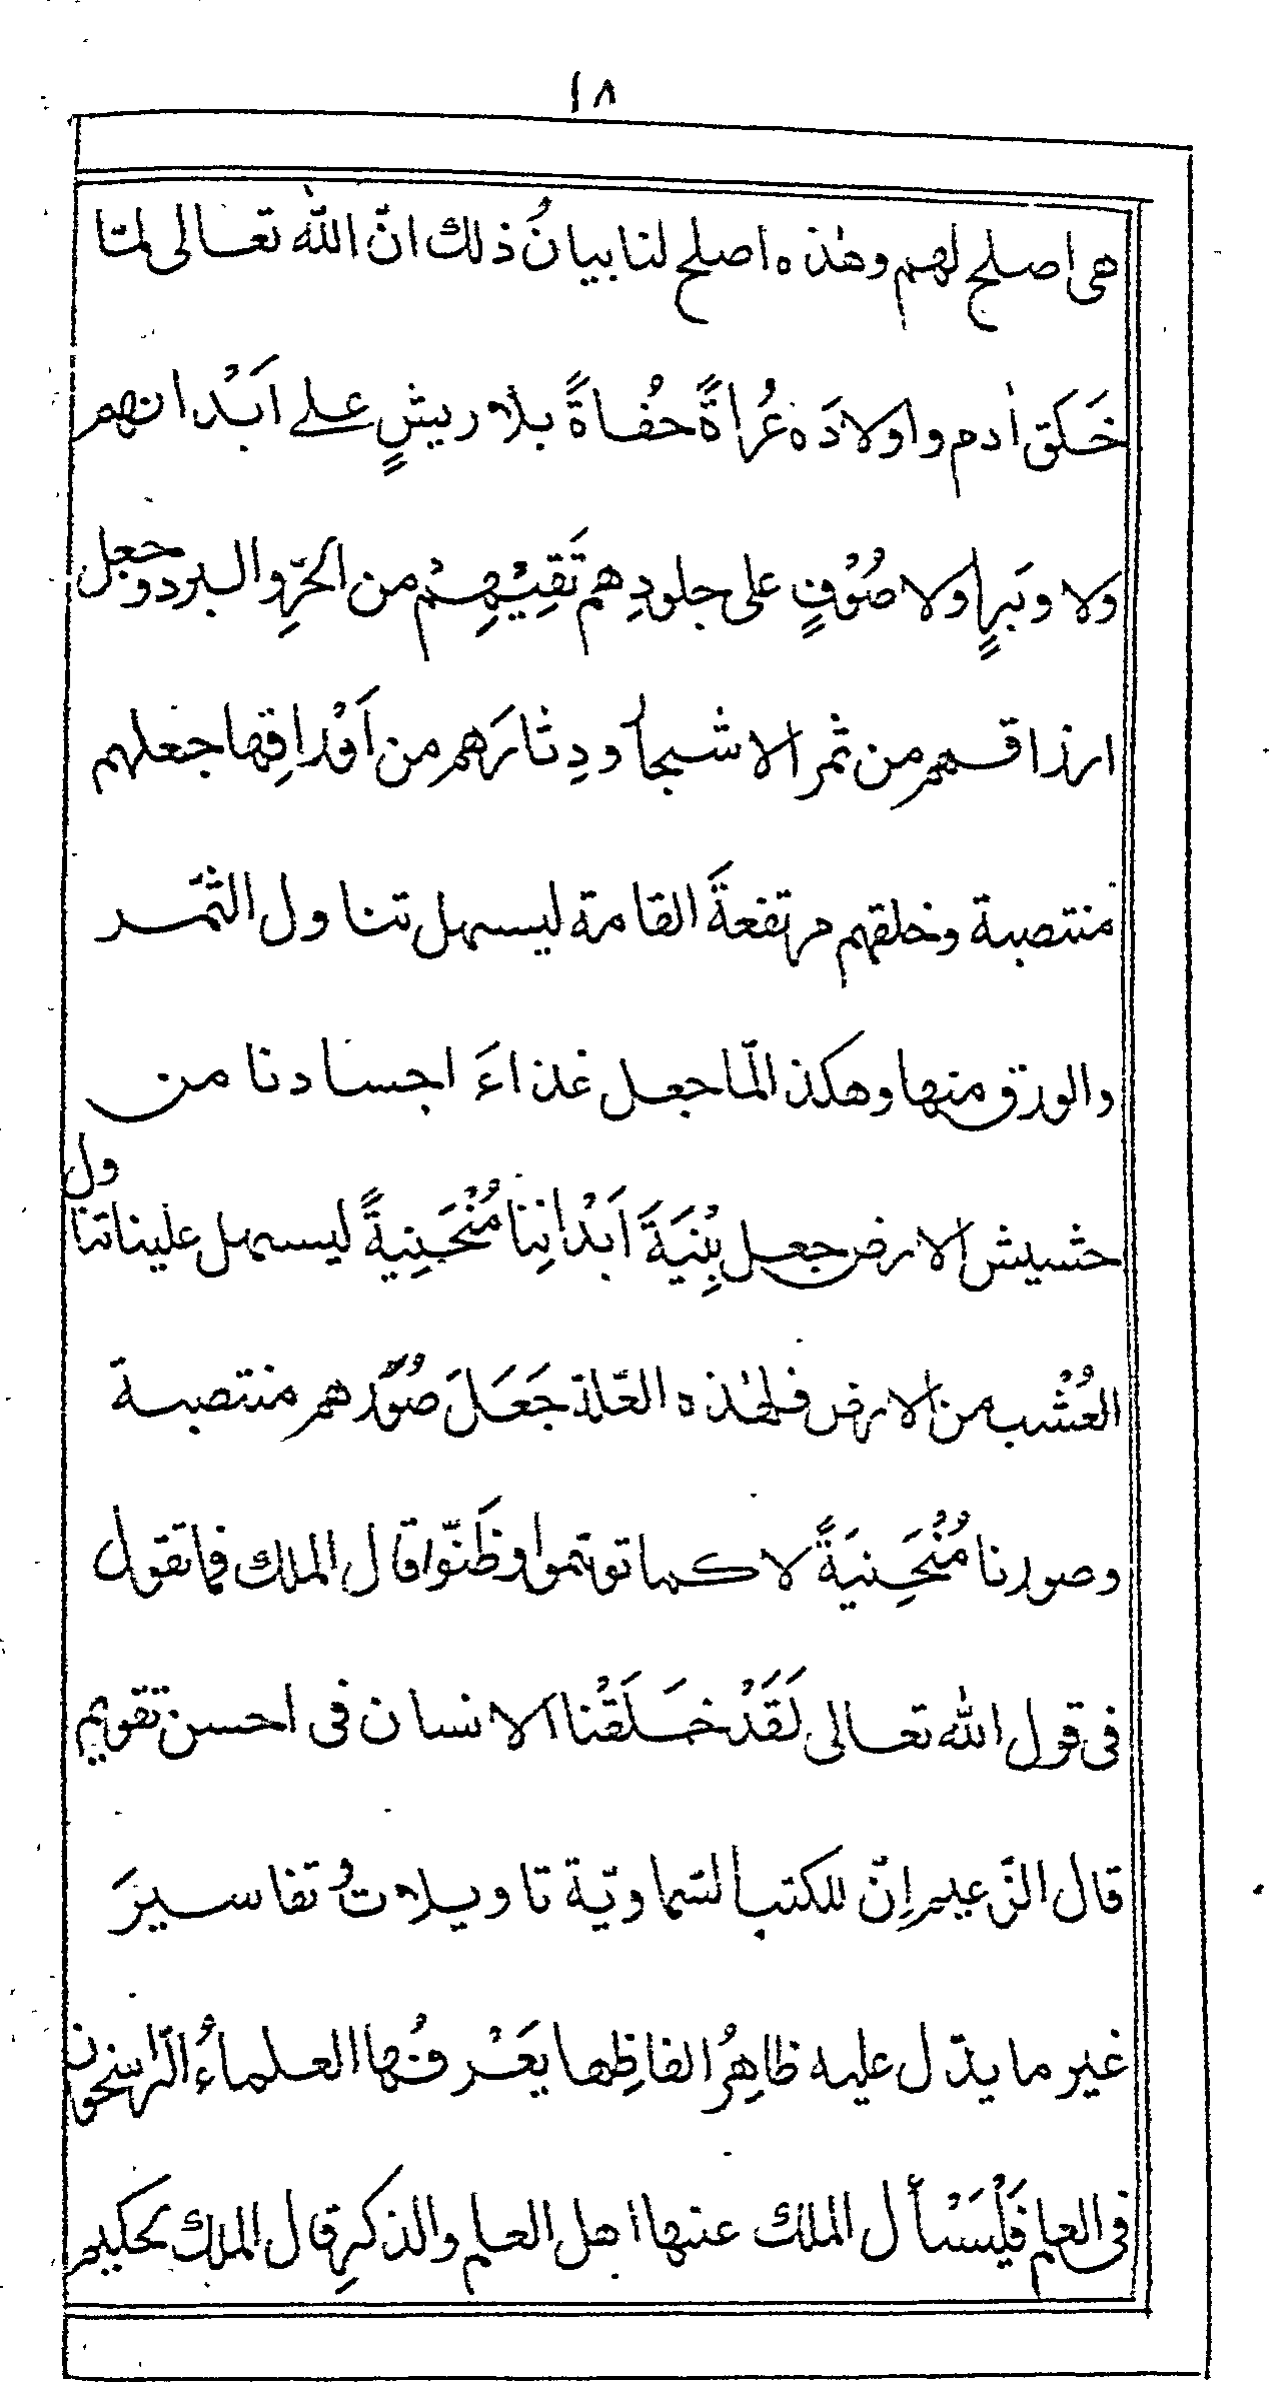 ١٨
هى اصلح لهم وهٰذه اصلح لنا بيانُ ذلك انّ اللّٰه تعالى لمّا
خَلق اٰدم واولادَه عُراةً حُفاةً بلا ريشٍ على اَبْدانهم
ولا وبَرٍ ولا صُوْفٍ على جلودِهم تَقِيْهِمْ من الحَرِّ والبرد وجعل
ارزاقهم من ثمر الاشجار ودِثارَهم من اَوْراقِها جعلهم
منتصبة وخلقهم مرتفعةَ القامة ليسهل تناول الثمَر
والورق منها وهكذا لمّا جعل غذاءَ اجسادنا من
حشيش الارض جعل بِنْيَةَ اَبْدانِنا مُنْحَنِيةً ليسهل علينا تناول
العُشْب من الارض فلهٰذه العّلة جَعَلَ صُوَرهم منتصبة
وصورنا مُنْحَنِيَةً لا كما توهموا وظَنّوا قال الملك فما تقول
فى قول اللّٰه تعالى لَقَدْ خَلَقْنا الانسان فى احسن تقويم
قال الزّعيم اِنّ للكتب السّماويّة تاويلاتُ وتفاسيرَ
غير ما يدّل عليه ظاهِرُ الفاظِها يَعْرفُها العلماءُ الرّاسخون
فى العلم فَلْيَسْأل الملك عنها اهل العلم والذكرِ قال الملك لحكيم